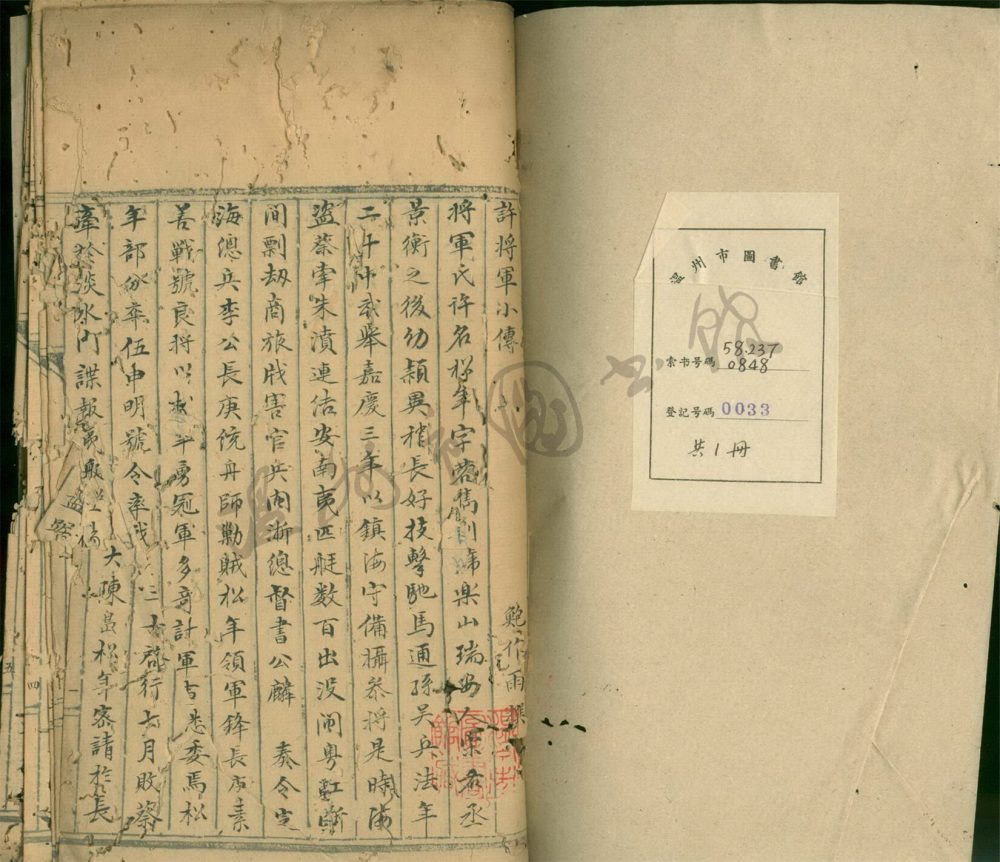 許將軍小傳
鮑作雨撰
將軍氏許名松年字蓉雋別號樂山瑞安人宋右丞
景衡之後幼穎異稍長好技擊馳馬通孫吳兵法年
二十中武舉嘉慶三年以鎮海守備攝參將是時海
盜蔡牽朱濆連结安南夷匹艇数百出没闽粤
間剽劫商旅戕害官兵闽浙總督書公麟 奏令定
海總兵李公長庚统舟師勦賊松年領軍鋒長庚素
善戰號良將以松年勇冠軍多奇計軍
悉委焉松
年部
伍申明號令率
行七月敗蔡
牽於淡水门諜報
大陳
松年密請於長
温州市圖書館
索书号碼 58.237
0848
登記号碼 0033
共1冊